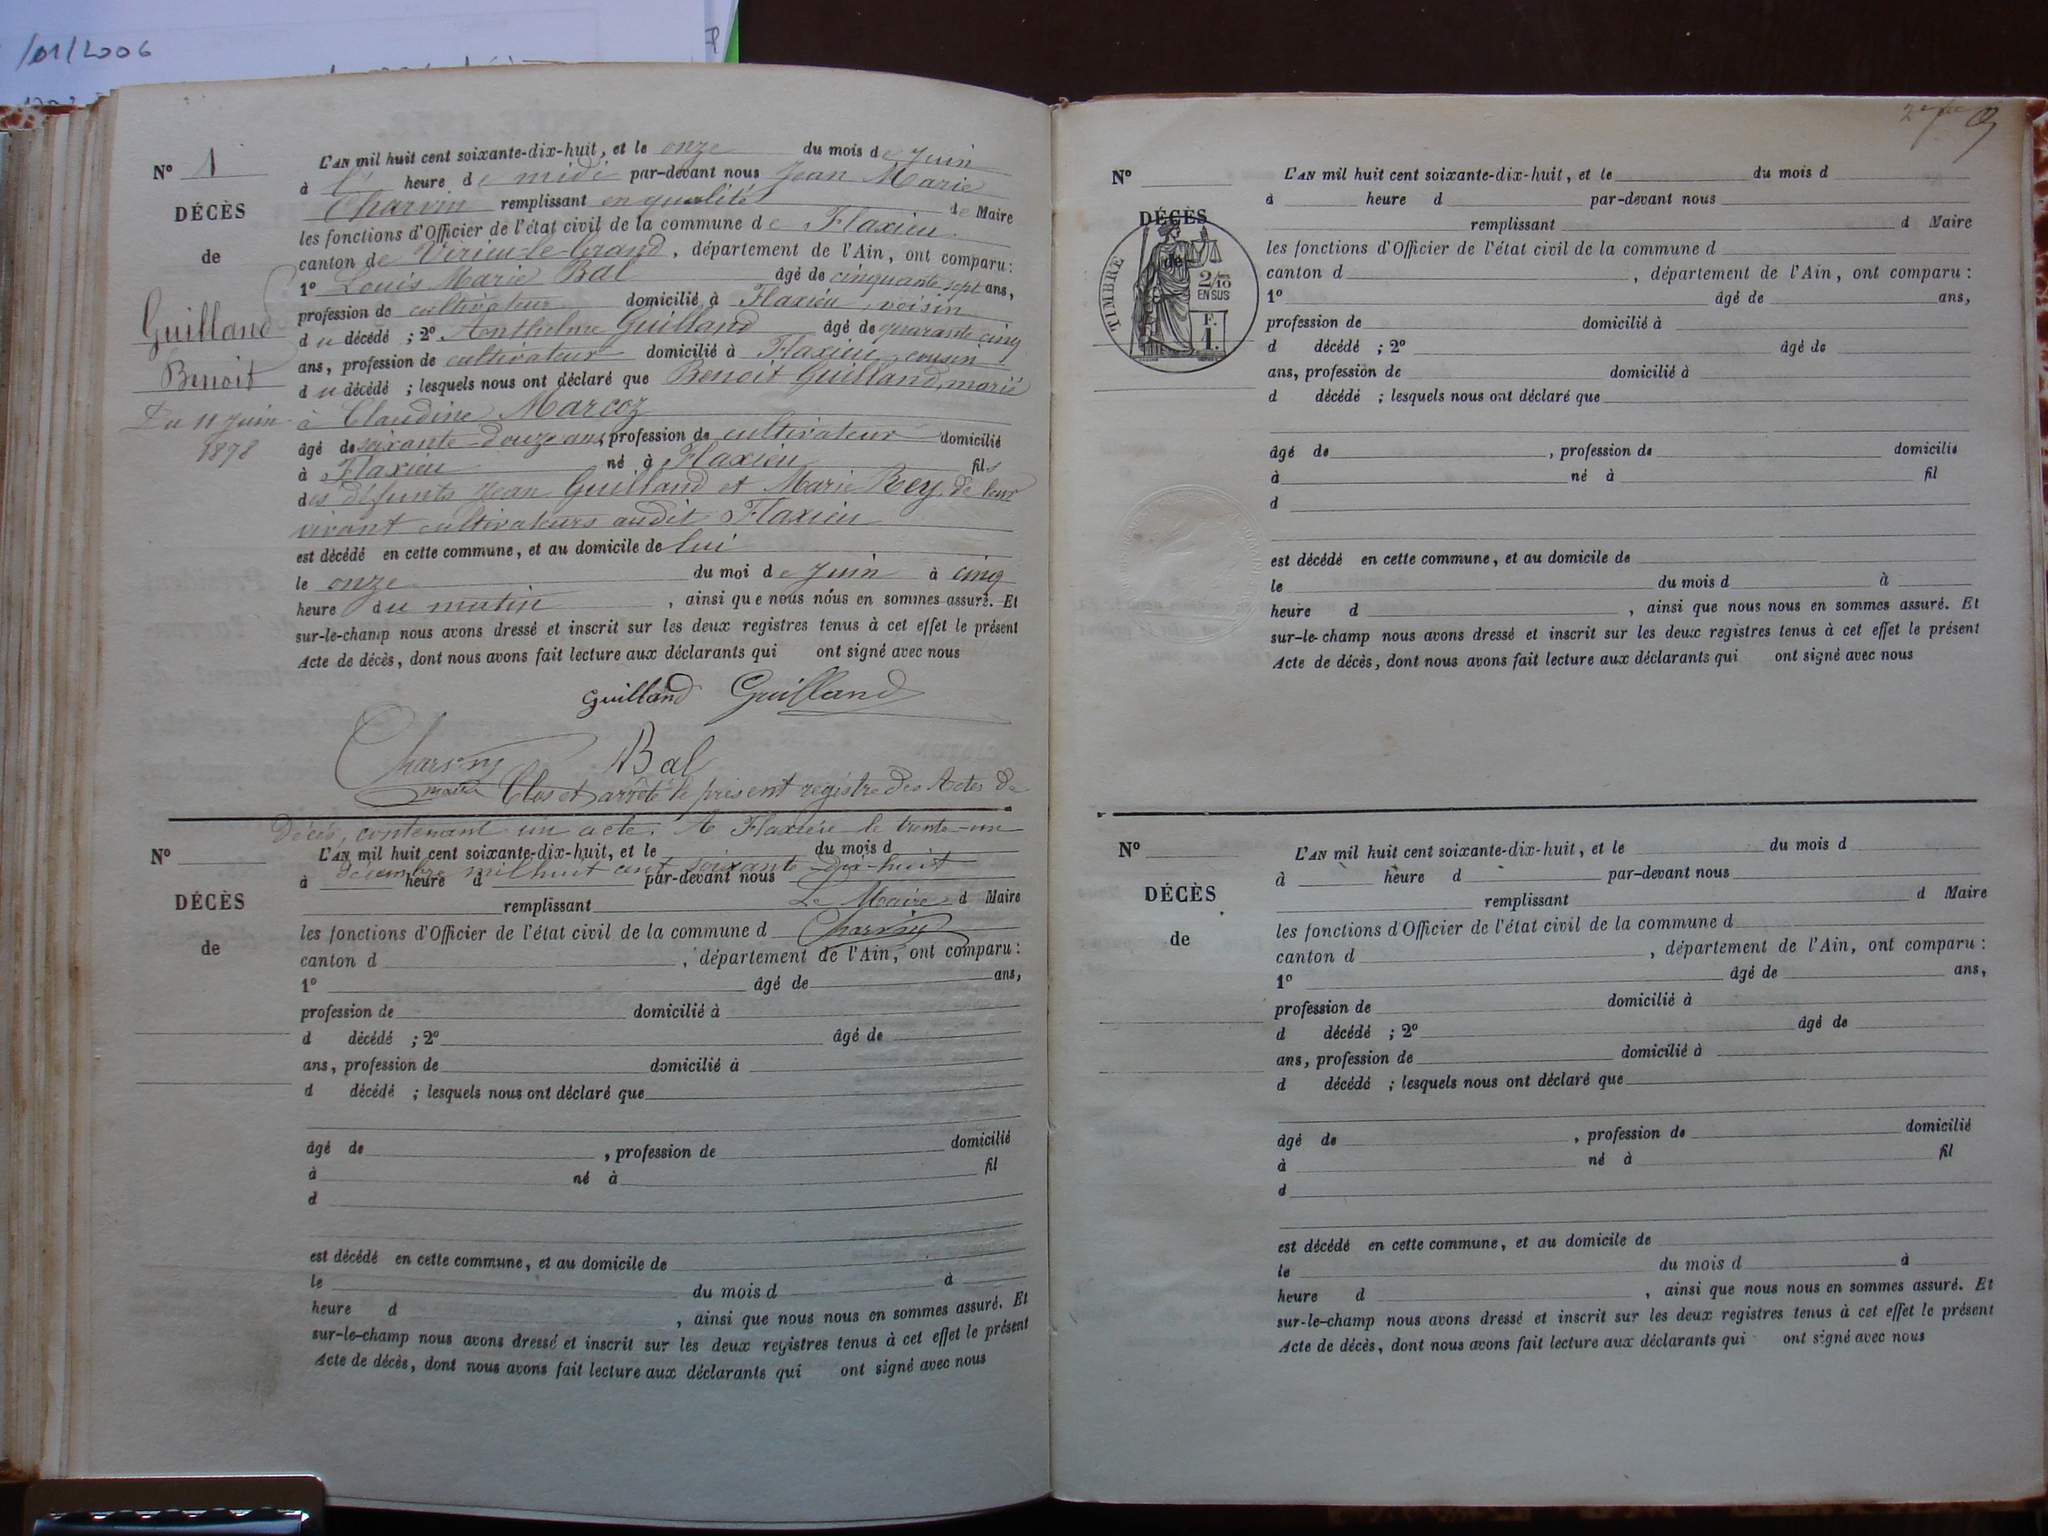 /01/2006
N° 1
DÉCÈS
de
Guilland
Benoit
Du 11 Juin
1878
L'AN mil huit cent soixante-dix-huit, et le onze du mois de Juin
à l' heure de midi par-devant nous Jean Marie
Charvin remplissant en qualité de Maire
les fonctions d'Officier de l'état civil de la commune de Flaxieu
canton de Virieu-le-Grand, département de l'Ain, ont comparu :
1° Louis Marie Bal âgé de cinquante sept ans,
profession de cultivateur domicilié à Flaxieu, voisin
du décédé ; 2° Anthelme Guilland âgé de quarante cinq
ans, profession de cultivateur domicilié à Flaxieu, cousin
du décédé ; lesquels nous ont déclaré que Benoit Guilland, marié
à Claudine Marcoz
âgé de soixante-douze ans, profession de cultivateur domicilié
à Flaxieu né à Flaxieu fils
des défunts Jean Guilland et Marie Rey, de leur
vivant cultivateurs audit Flaxieu
est décédé en cette commune, et au domicile de lui
le onze du moi de Juin à cinq
heure du matin , ainsi que nous nous en sommes assuré. Et
sur-le-champ nous avons dressé et inscrit sur les deux registres tenus à cet effet le présent
Acte de décès, dont nous avons fait lecture aux déclarants qui ont signé avec nous
Guilland Guilland
Charvin Bal
maire Clos et arrêté le présent registre des Actes de
Décès, contenant un acte. A Flaxieu le trente-un
décembre mil huit cent soixante-dix-huit
Le Maire
Charvin
N°
DÉCÈS
de
L'AN mil huit cent soixante-dix-huit, et le du mois d
à heure d par-devant nous
remplissant d Maire
les fonctions d'Officier de l'état civil de la commune d
canton d , département de l'Ain, ont comparu :
1° âgé de ans,
profession de domicilié à
d décédé ; 2° âgé de
ans, profession de domicilié à
d décédé ; lesquels nous ont déclaré que
âgé de , profession de domicilié
à né à fil
d
est décédé en cette commune, et au domicile de
le du mois d à
heure d , ainsi que nous nous en sommes assuré. Et
sur-le-champ nous avons dressé et inscrit sur les deux registres tenus à cet effet le présent
Acte de décès, dont nous avons fait lecture aux déclarants qui ont signé avec nous
N°
DÉCÈS
de
TIMBRE
2/10
EN SUS
F.
1.
L'AN mil huit cent soixante-dix-huit, et le du mois d
à heure d par-devant nous
remplissant d Maire
les fonctions d'Officier de l'état civil de la commune d
canton d , département de l'Ain, ont comparu :
1° âgé de ans,
profession de domicilié à
d décédé ; 2° âgé de
ans, profession de domicilié à
d décédé ; lesquels nous ont déclaré que
âgé de , profession de domicilié
à né à fil
d
est décédé en cette commune, et au domicile de
le du mois d à
heure d , ainsi que nous nous en sommes assuré. Et
sur-le-champ nous avons dressé et inscrit sur les deux registres tenus à cet effet le présent
Acte de décès, dont nous avons fait lecture aux déclarants qui ont signé avec nous
N°
DÉCÈS
de
L'AN mil huit cent soixante-dix-huit, et le du mois d
à heure d par-devant nous
remplissant d Maire
les fonctions d'Officier de l'état civil de la commune d
canton d , département de l'Ain, ont comparu :
1° âgé de ans,
profession de domicilié à
d décédé ; 2° âgé de
ans, profession de domicilié à
d décédé ; lesquels nous ont déclaré que
âgé de , profession de domicilié
à né à fil
d
est décédé en cette commune, et au domicile de
le du mois d à
heure d , ainsi que nous nous en sommes assuré. Et
sur-le-champ nous avons dressé et inscrit sur les deux registres tenus à cet effet le présent
Acte de décès, dont nous avons fait lecture aux déclarants qui ont signé avec nous